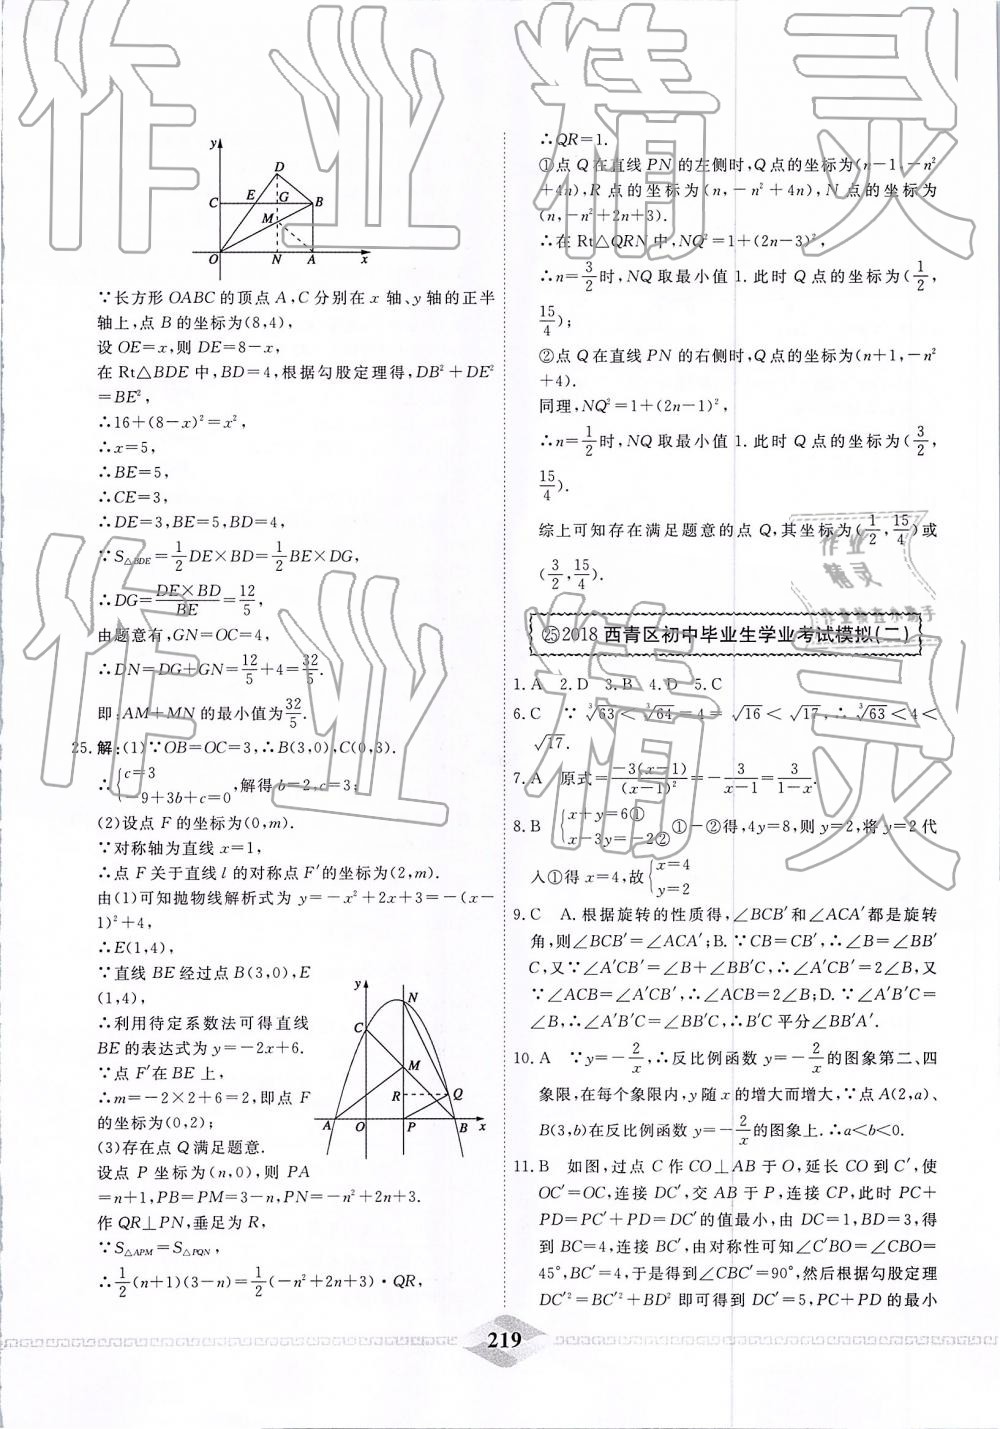 作业精灵
y
D
C
E
G
B
M
O
N
A
x
∵长方形 OABC 的顶点 A,C 分别在 x 轴、y 轴的正半
轴上,点 B 的坐标为(8,4),
设 OE=x,则 DE=8-x,
在 Rt△BDE 中,BD=4,根据勾股定理得,DB²+DE²
=BE²,
∴16+(8-x)²=x²,
∴x=5,
∴BE=5,
∴CE=3,
∴DE=3,BE=5,BD=4,
∵S△BDE=1/2 DE×BD=1/2 BE×DG,
∴DG=DE×BD/BE=12/5,
由题意有,GN=OC=4,
∴DN=DG+GN=12/5+4=32/5.
即:AM+MN 的最小值为32/5.
25.解:(1)∵OB=OC=3,∴B(3,0),C(0,3).
∴{c=3
-9+3b+c=0,解得 b=2,c=3;
(2)设点 F 的坐标为(0,m).
∵对称轴为直线 x=1,
∴点 F 关于直线 l 的对称点 F′的坐标为(2,m).
由(1)可知抛物线解析式为 y=-x²+2x+3=-(x-
1)²+4,
∴E(1,4),
∵直线 BE 经过点 B(3,0),E
(1,4),
∴利用待定系数法可得直线
BE 的表达式为 y=-2x+6.
∵点 F′在 BE 上,
∴m=-2×2+6=2,即点 F
的坐标为(0,2);
(3)存在点 Q 满足题意.
设点 P 坐标为(n,0),则 PA
=n+1,PB=PM=3-n,PN=-n²+2n+3.
作 QR⊥PN,垂足为 R,
∵S△APM=S△PQN,
∴1/2(n+1)(3-n)=1/2(-n²+2n+3)·QR,
y
N
C
M
R
Q
A
O
P
B
x
∴QR=1.
①点 Q 在直线 PN 的左侧时,Q 点的坐标为(n-1,-n²
+4n),R 点的坐标为(n,-n²+4n),N 点的坐标为
(n,-n²+2n+3).
∴在 Rt△QRN 中,NQ²=1+(2n-3)²,
∴n=3/2时,NQ 取最小值 1.此时 Q 点的坐标为(1/2,
15/4);
②点 Q 在直线 PN 的右侧时,Q 点的坐标为(n+1,-n²
+4).
同理,NQ²=1+(2n-1)²,
∴n=1/2时,NQ 取最小值 1.此时 Q 点的坐标为(3/2,
15/4).
综上可知存在满足题意的点 Q,其坐标为(1/2,15/4)或
(3/2,15/4).
㉕2018 西青区初中毕业生学业考试模拟(二)
1.A 2.D 3.B 4.D 5.C
6.C ∵∛63<∛64=4=√16<√17,∴∛63<4<
√17.
7.A 原式=-3(x-1)/(x-1)²=-3/(x-1)=3/(1-x).
8.B {x+y=6①
x-3y=-2② ①-②得,4y=8,则 y=2,将 y=2 代
入①得 x=4,故{x=4
y=2
9.C A.根据旋转的性质得,∠BCB′和∠ACA′都是旋转
角,则∠BCB′=∠ACA′;B.∵CB=CB′,∴∠B=∠BB′
C,又∵∠A′CB′=∠B+∠BB′C,∴∠A′CB′=2∠B,又
∵∠ACB=∠A′CB′,∴∠ACB=2∠B;D.∵∠A′B′C=
∠B,∴∠A′B′C=∠BB′C,∴B′C 平分∠BB′A′.
10.A ∵y=-2/x,∴反比例函数 y=-2/x的图象第二、四
象限,在每个象限内,y 随 x 的增大而增大,∵点 A(2,a)、
B(3,b)在反比例函数 y=-2/x的图象上.∴a<b<0.
11.B 如图,过点 C 作 CO⊥AB 于 O,延长 CO 到 C′,使
OC′=OC,连接 DC′,交 AB 于 P,连接 CP,此时 PC+
PD=PC′+PD=DC′的值最小,由 DC=1,BD=3,得
到 BC=4,连接 BC′,由对称性可知∠C′BO=∠CBO=
45°,BC′=4,于是得到∠CBC′=90°,然后根据勾股定理
DC′²=BC′²+BD² 即可得到 DC′=5,PC+PD 的最小
219